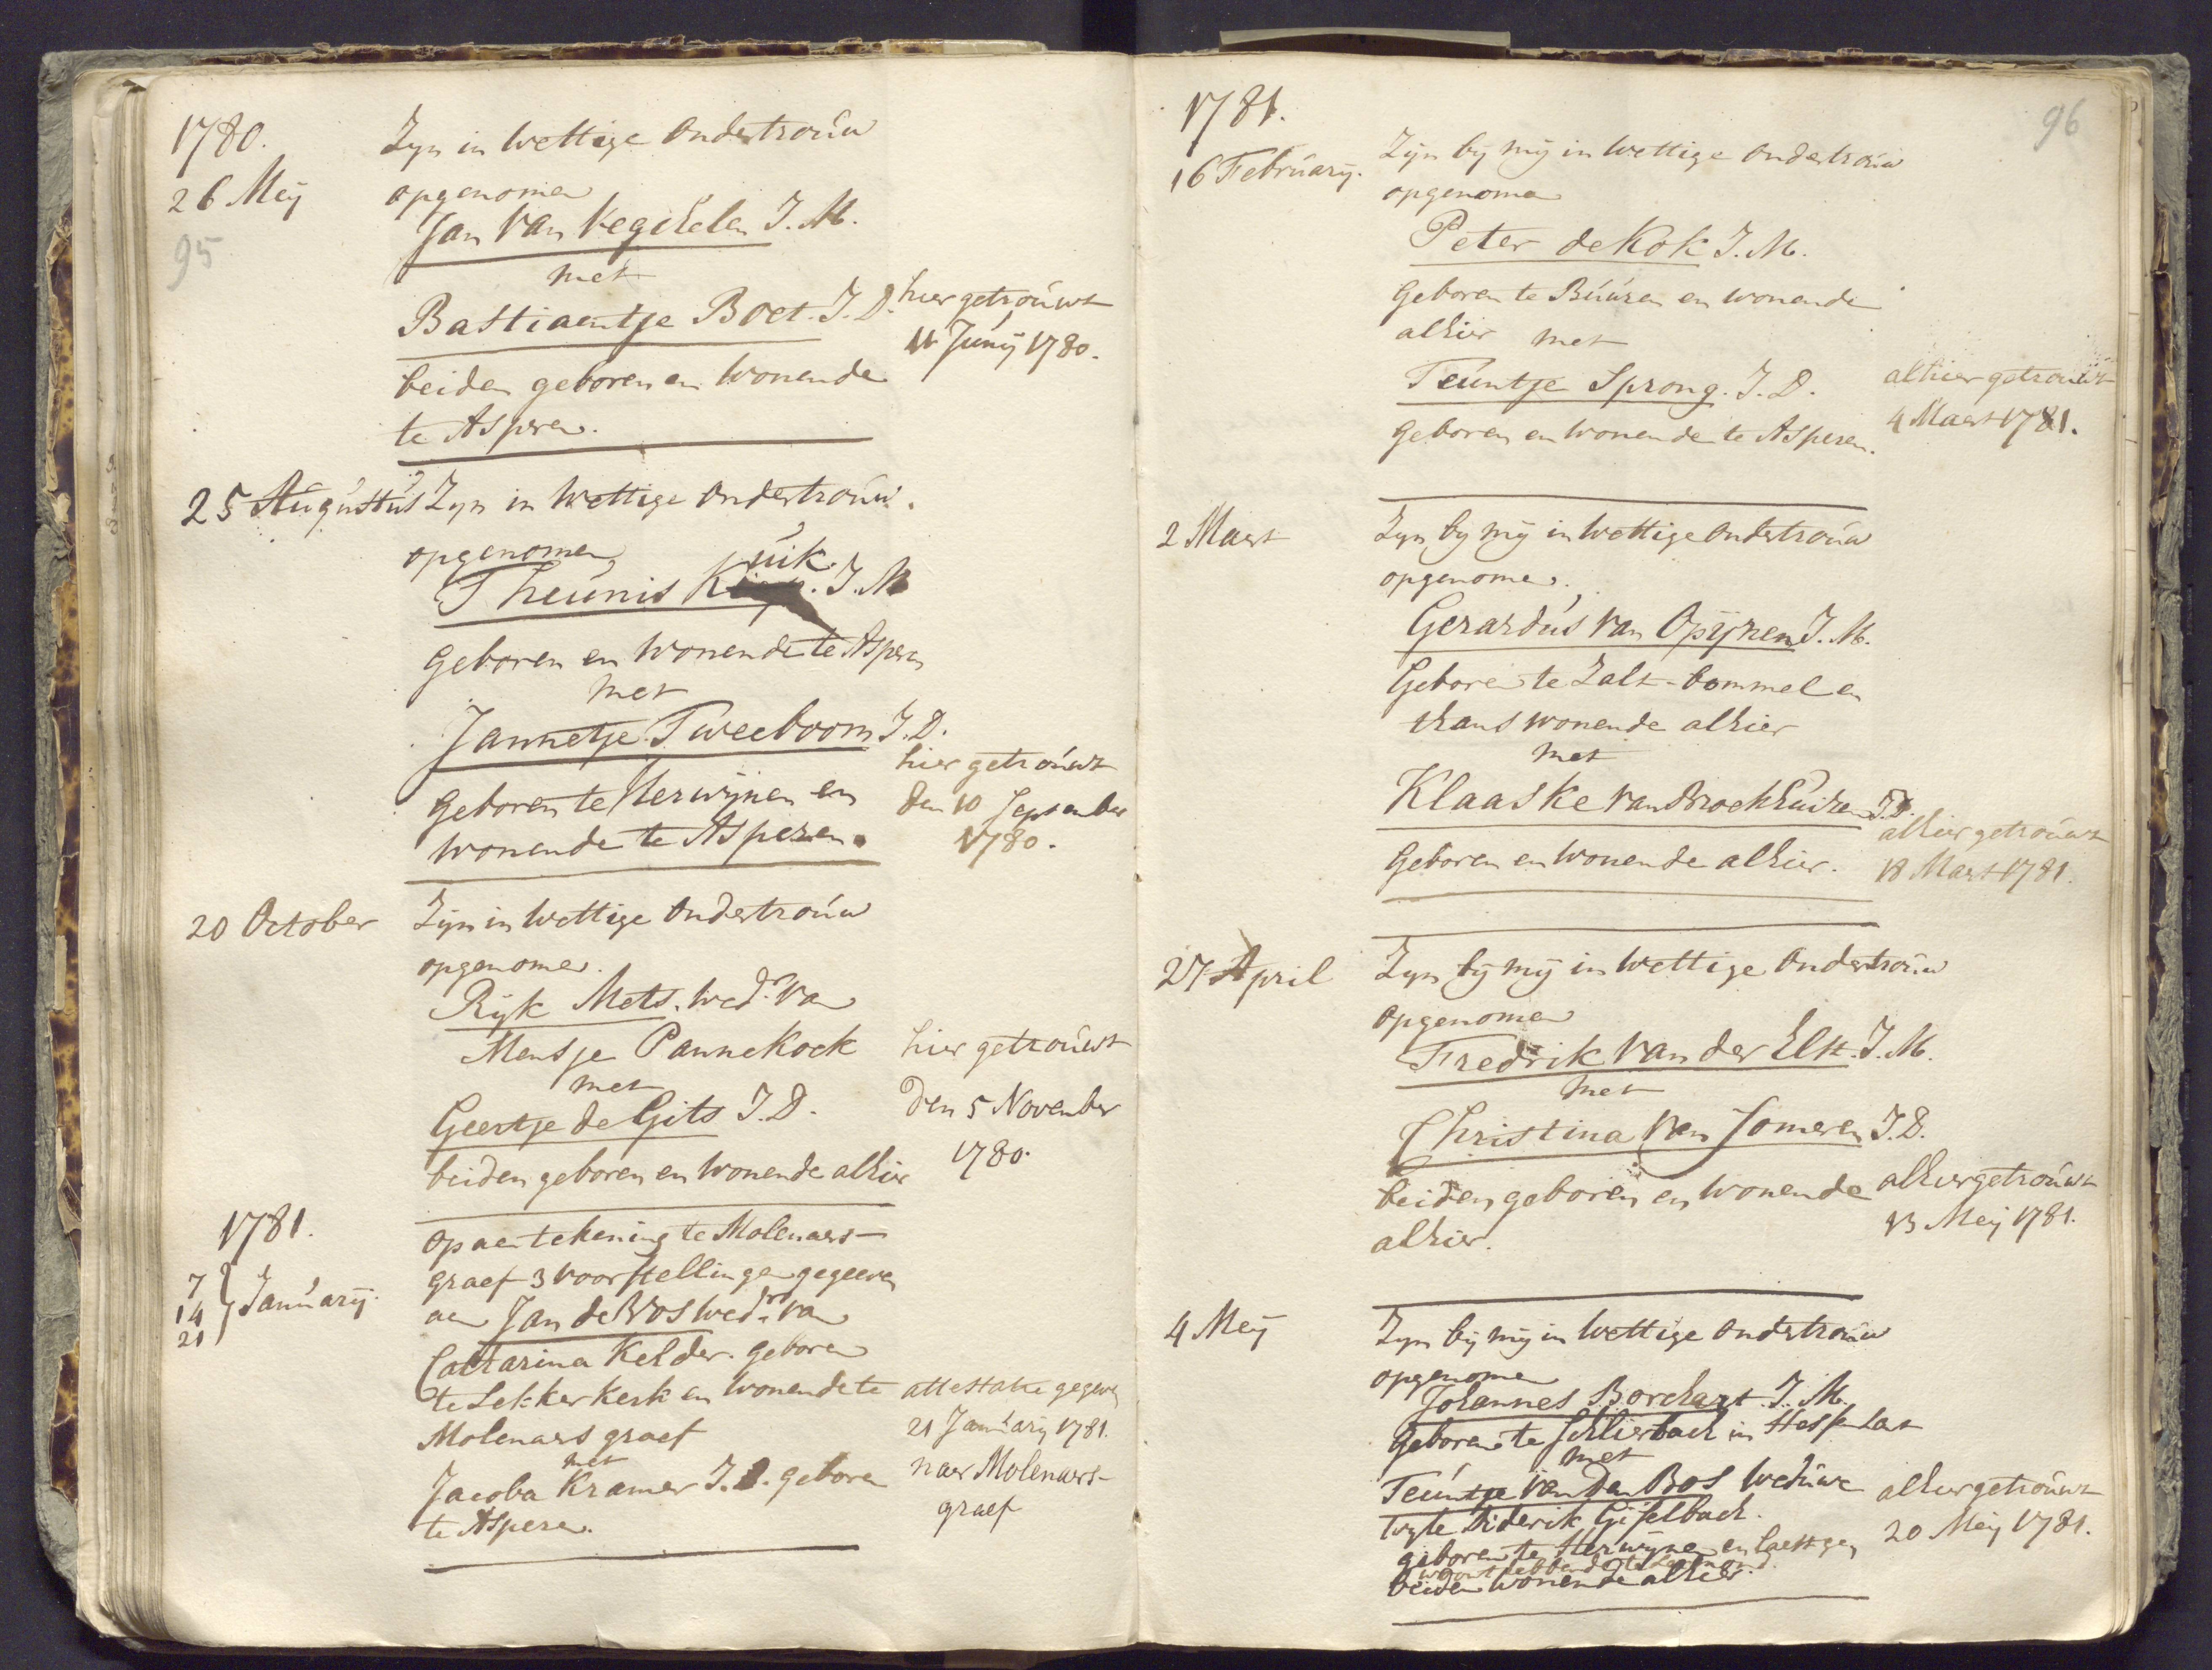 1780.
26 Meij
95
Zyn in Wettige Ondertrouw
opgenomen
Jan Van Veghelen J. M.
met
Bastiaentje Boet. J. D.
hier getrouwt
11 Junij 1780.
beiden geboren en Wonende
te Asperen.
25 Augustus
Zyn in Wettige Ondertrouw.
opgenomen
Theunis Kuik. J. M
geboren en Wonende te Asperen
met
Jannetje Tweeboom J. D.
geboren te Herwijnen en
wonende te Asperen.
hier getrouwt
den 10 September
1780.
20 October
Zijn in Wettige Ondertrouw
opgenomen.
Rijk Mets. Wedr. Van
Mensje Pannekoek
met
Geertje de Gits J. D.
beiden geboren en Wonende alhier
hier getrouwt
den 5 November
1780.
1781.
7
14 January.
21
Op aentekening te Molenaers-
graef 3 voorstellingen gegeeven
aen Jan de Vos Wedr. van
Catharina Kelder. geboren
te Lekkerkerk en Wonende te
Molenaersgraef
met
Jacoba Kramer J. D. geboren
te Asperen.
attestatie gegeven
21 January 1781.
naer Molenaers-
graef
1781.
96
16 February.
Zijn bij mij in Wettige Ondertrouw
opgenomen
Peter de Kok J. M.
Geboren te Buuren en wonende
alhier met
Teuntje Sprong. J. D.
Geboren en Wonende te Asperen.
alhier getrouwt
4 Maert 1781.
2 Maert
Zyn by mij in Wettige Ondertrouw
opgenomen.
Gerardus Van Opijnen J. M.
Geboren te Zalt-bommel en
thans wonende alhier
met
Klaaske van Broekhuizen J. D.
Geboren en Wonende alhier.
alhier getrouwt
18 Maert 1781.
27 April
Zyn bij mij in Wettige Ondertrouw
opgenomen
Fredrik Van der Elst. J. M.
met
Christina Van Someren J. D.
beiden geboren en Wonende
alhier.
alhier getrouwt
13 Meij 1781.
4 Meij
Zyn bij mij in Wettige Ondertrouw
opgenomen
Johannes Borchart. J. M.
Geboren te Schlierbach in
met
Teuntje Van Den Bos Weduwe
wyle Diderik Gijselbach.
geboren te Herwijnen en laetst ge
woont hebbende te
beiden Wonende alhier.
alhier getrouwt
20 Meij 1781.